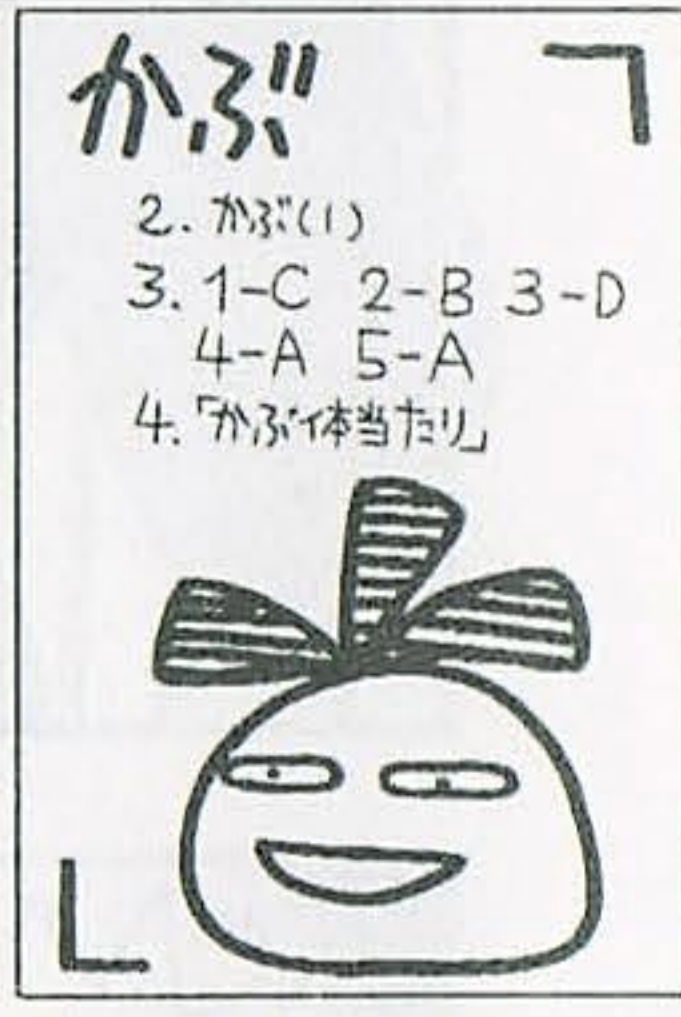 かぶ
2. かぶ(1)
3. 1-C 2-B 3-D
4-A 5-A
4.「かぶ体当たり」